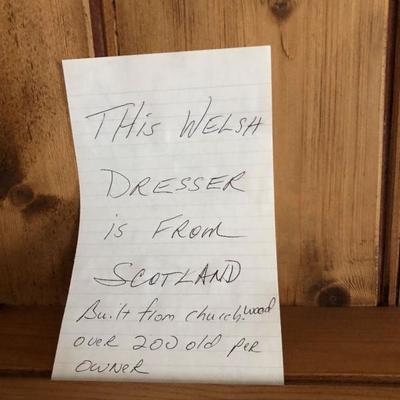 THis WELSH
DRESSER
is FROM
SCOTLAND
Built from church wood
over 200 old per
owner